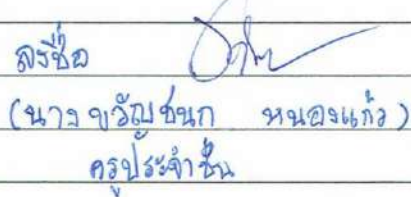 ลงชื่อ
(นางขวัญชนก หนองแก้ว)
ครูประจำชั้น